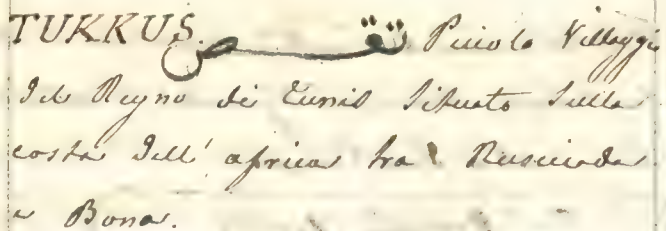 TUKKUS. تقص Piccolo Villaggio
del Regno di Tunis situato sulla
costa dell' africa tra Rusicada
e Bona.